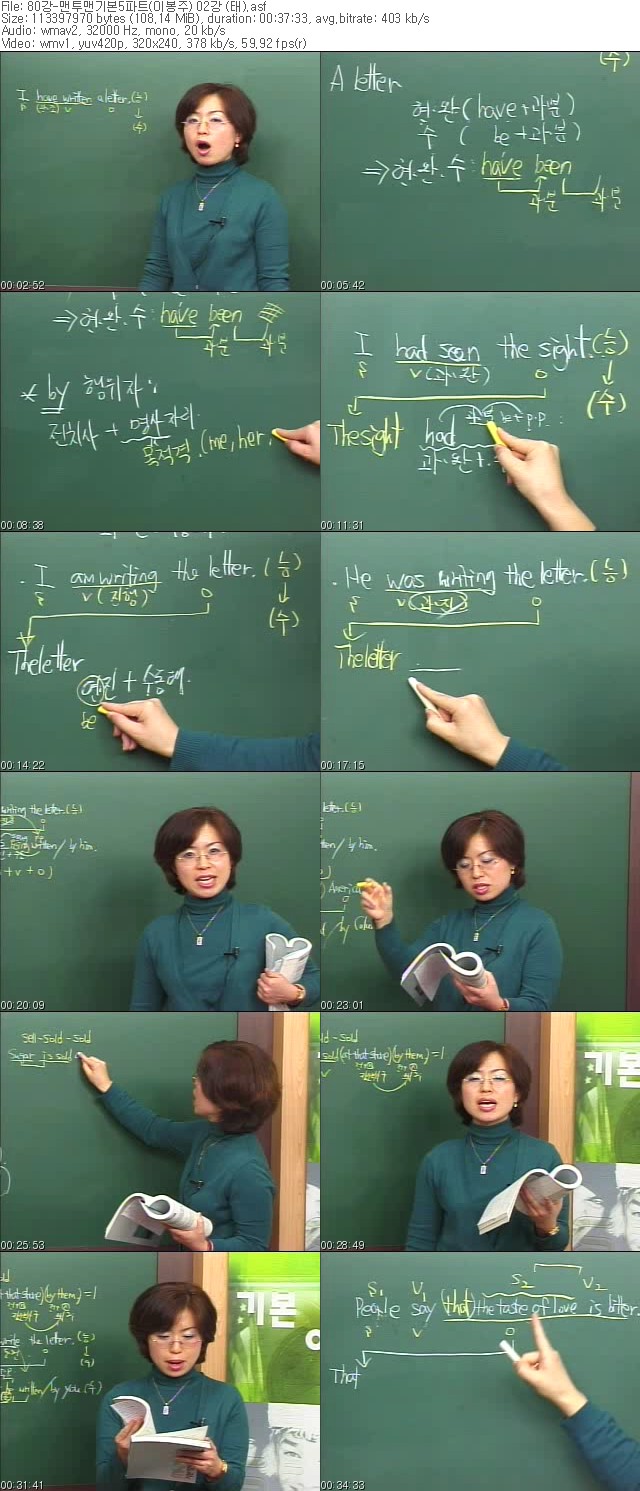 File: 80강-맨투맨기본5파트(이봉주) 02강 (태).asf
Size: 113397970 bytes (108,14 MiB), duration: 00:37:33, avg,bitrate: 403 kb/s
Audio: wmav2, 32000 Hz, mono, 20 kb/s
Video: wmv1, yuv420p, 320x240, 378 kb/s, 59,92 fps(r)
I have written a letter. (능)
v o
(수)
00:02:52
(수)
A letter
현·완 (have + 과·분)
수 ( be + 과·분)
⇒ 현·완·수: have been
과·분 과·분
00:05:42
⇒ 현·완·수: have been
과·분 과·분
* by 행위자
전치사 + 명사 자리
목적격 (me, her,
00:08:38
I had seen the sight. (능)
v (과·완) o
(수)
The sight had be + p.p.
과·완 + 수
00:11:31
I am writing the letter. (능)
v (진행) o
(수)
The letter
현진 + 수동태.
be
00:14:22
He was writing the letter. (능)
v (과·진) o
The letter
00:17:15
writing the letter. (능)
being written / by him.
+ v + o)
00:20:09
letter. (능)
by him.
America
by
00:23:01
sell-sold-sold
Sugar is sold
00:25:53
-sold
sold (at that store) (by them) = 1
v
기본
00:28:49
that store) (by them) = 1
the letter. (능)
written / by you (수)
기본
00:31:41
S₁ V₁ S₂ V₂
People say (that) the taste of love is bitter.
v o
That
00:34:33